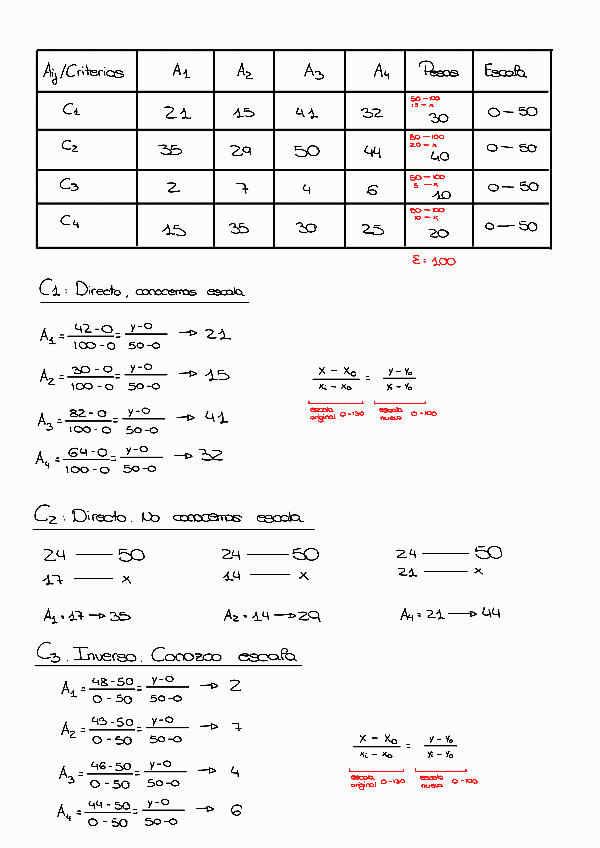 Aij/Criterios A1 A2 A3 A4 Pesos Escala
C1 21 15 41 32 50-100 15-x 30 0-50
C2 35 29 50 44 50-100 20-x 40 0-50
C3 2 7 4 6 50-100 5-x 10 0-50
C4 15 35 30 25 50-100 10-x 20 0-50
Σ=100
C1: Directo, conocemos escala
A1 = 42-0/100-0 = y-0/50-0 → 21
A2 = 30-0/100-0 = y-0/50-0 → 15
A3 = 82-0/100-0 = y-0/50-0 → 41
A4 = 64-0/100-0 = y-0/50-0 → 32
x-x0/xi-x0 = y-y0/yi-y0
escala original 0-130 escala nueva 0-100
C2: Directo. No conocemos escala
24 — 50 24 — 50 24 — 50
17 — x 14 — x 21 — x
A1 = 17 → 35 A2 = 14 → 29 A4 = 21 → 44
C3. Inverso. Conozco escala
A1 = 48-50/0-50 = y-0/50-0 → 2
A2 = 43-50/0-50 = y-0/50-0 → 7
A3 = 46-50/0-50 = y-0/50-0 → 4
A4 = 44-50/0-50 = y-0/50-0 → 6
x-x0/xi-x0 = y-y0/yi-y0
escala original 0-130 escala nueva 0-100